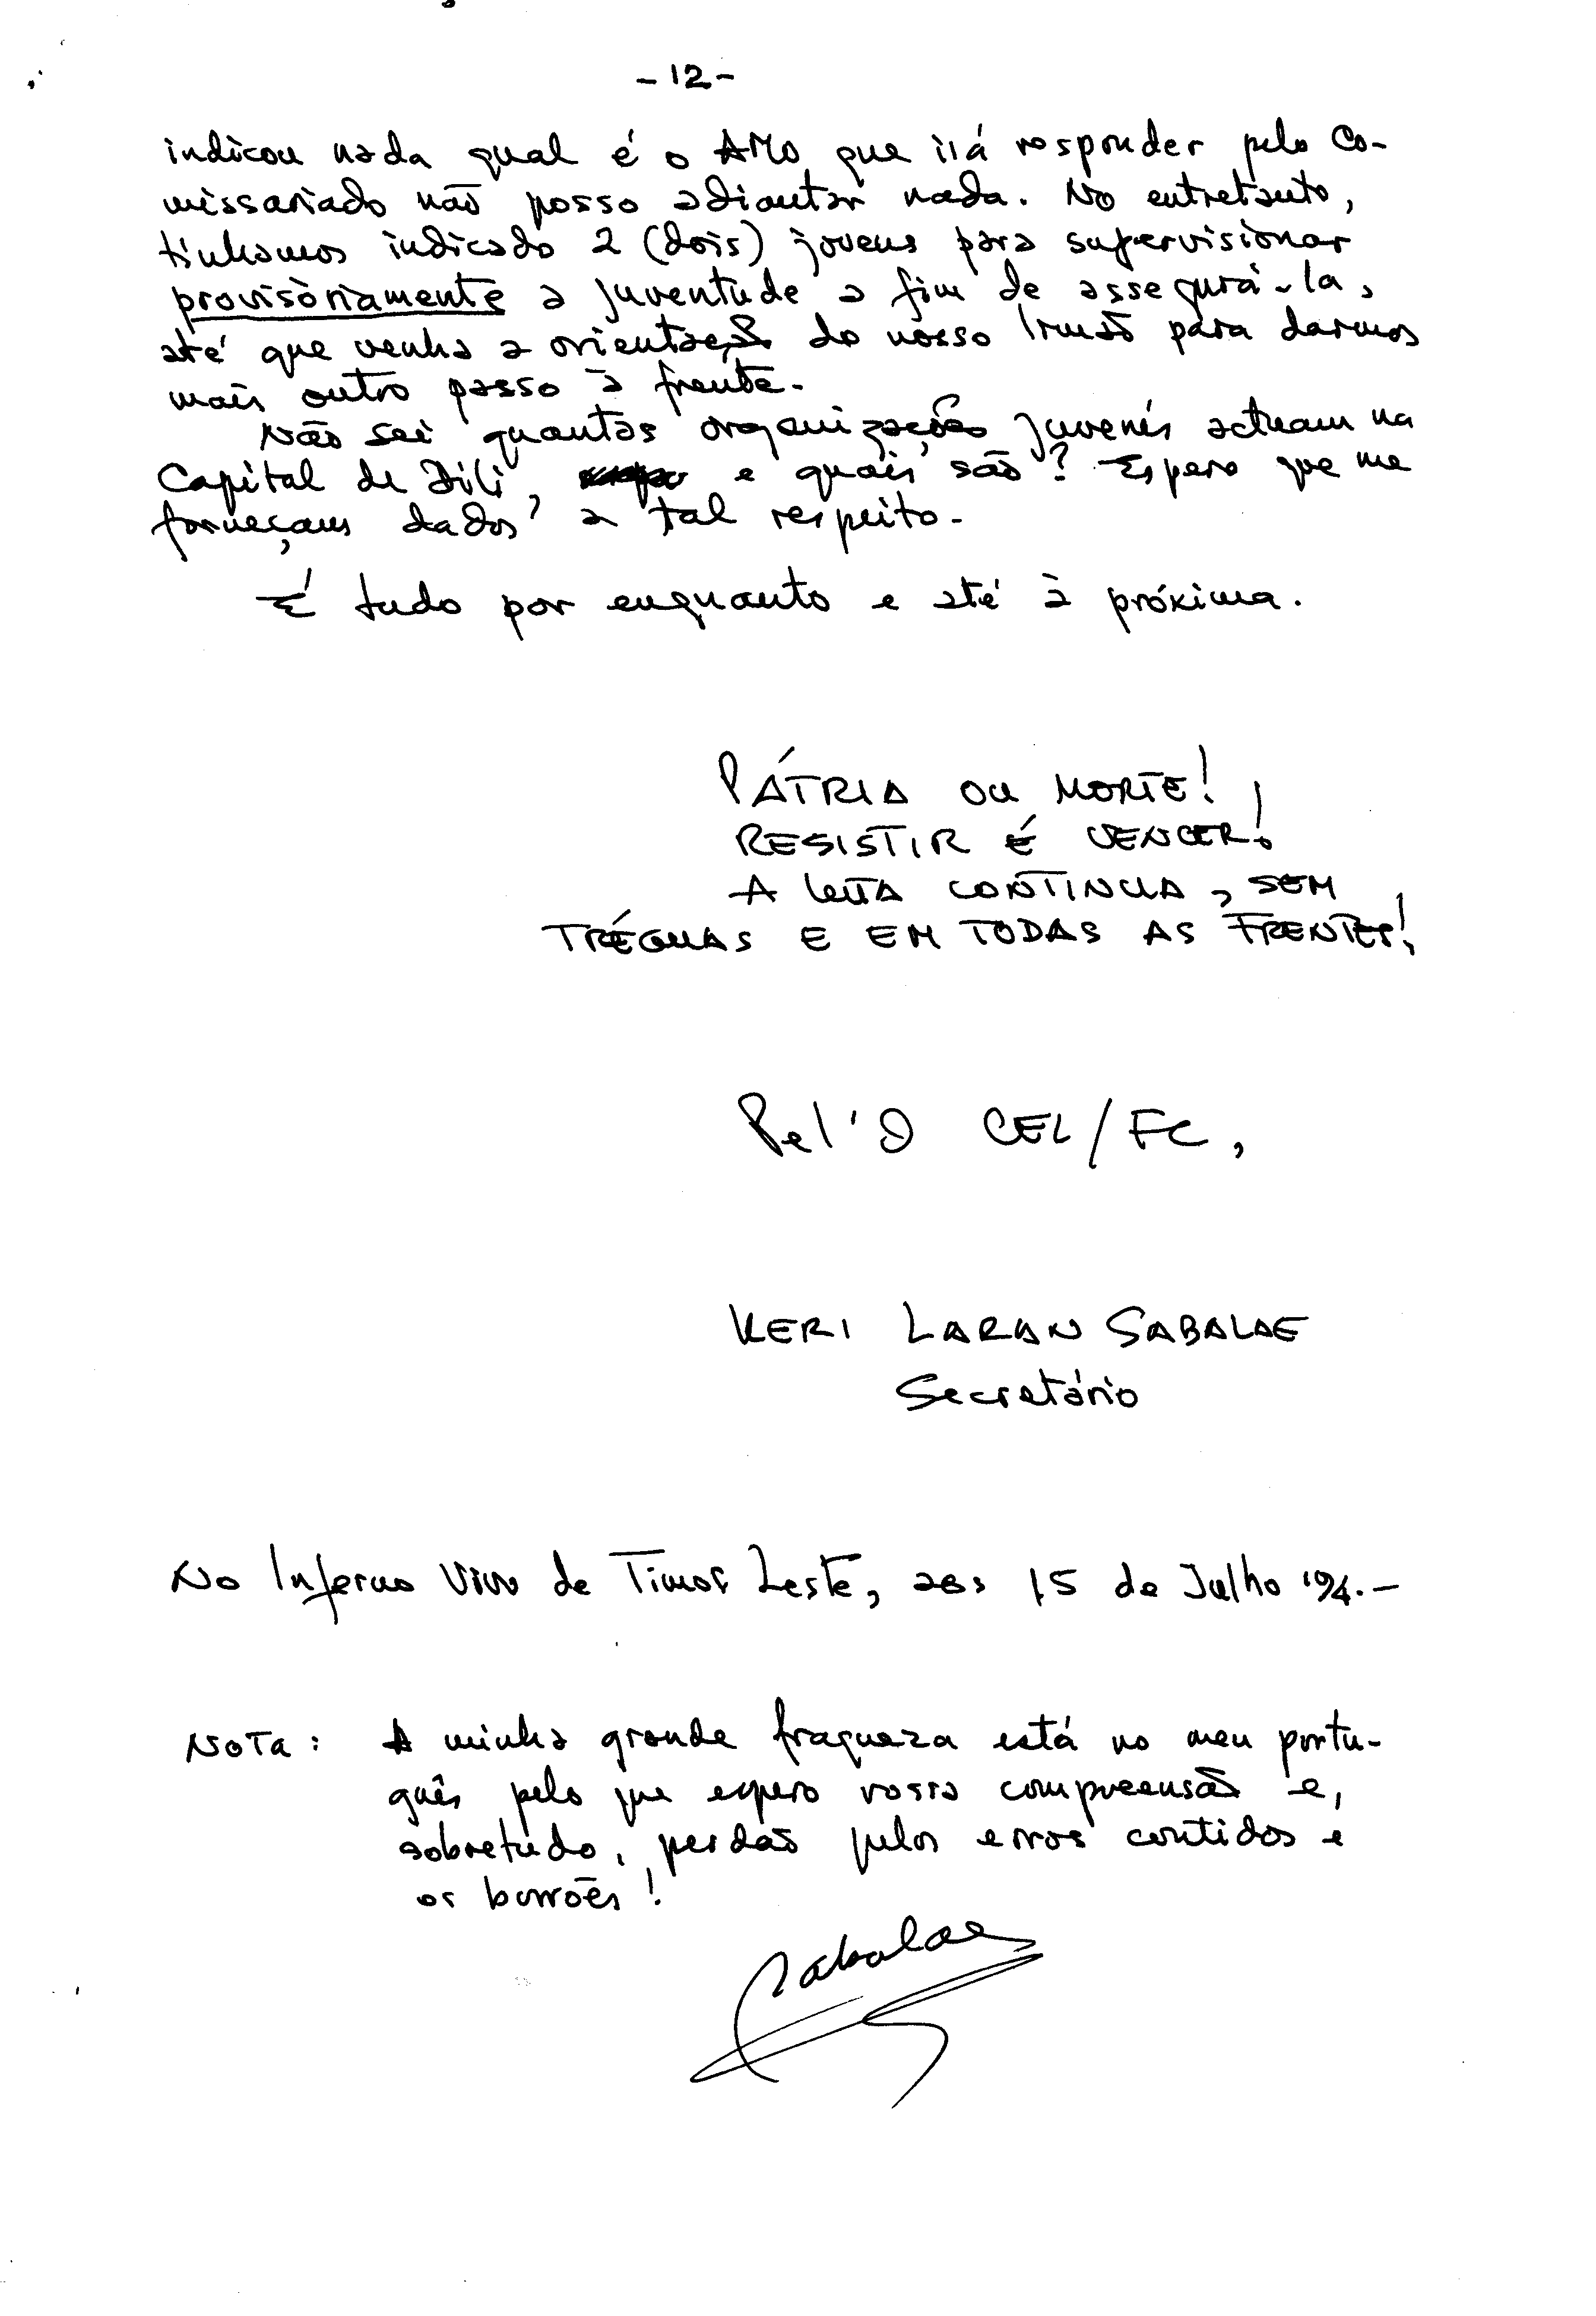 - 12 -
indicou nada qual é o AMO que irá responder pelo Co-
missariado não posso adiantar nada. No entretanto,
tínhamos indicado 2 (dois) jovens para supervisionar
provisòriamente a juventude a fim de assegurá-la,
até que venha a orientação do nosso Irmão para darmos
mais outro passo à frente.
Não sei quantas organizações juvenís actuam na
Capital de Díli, e quais são? Espero que me
forneçam dados a tal respeito.
É tudo por enquanto e até à próxima.
PÁTRIA OU MORTE!
RESISTIR É VENCER!
A LUTA CONTINUA, SEM
TRÉGUAS E EM TODAS AS FRENTES!
Pel'O CEL/FC,
KERI LARAN SABALAE
Secretário
No Inferno Vivo de Timor Leste, aos 15 de Julho '94.-
NOTA: A minha grande fraqueza está no meu portu-
guês pelo que espero vossa compreensão e,
sobretudo, perdão pelos erros contidos e
os borrões!
Sabalae